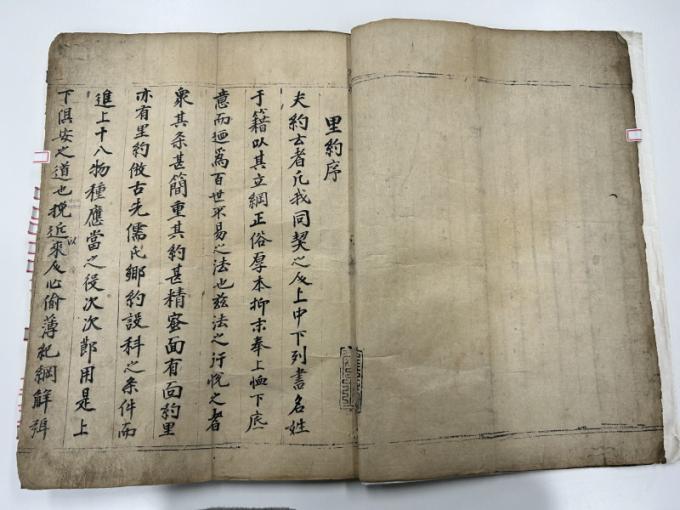 里約序
夫約玄者凡我同契之人上中下列書名姓
于籍以其立綱正俗厚本抑末奉上恤下底
意而廼爲百世不易之法也玆法之行悅之者
衆其条甚簡重其約甚精密面有面約里
亦有里約倣古先儒氏鄕約設科之条件而
進上十八物種應當之役次次節用是上
下俱安之道也挽近以來人心偷薄紀綱解弛